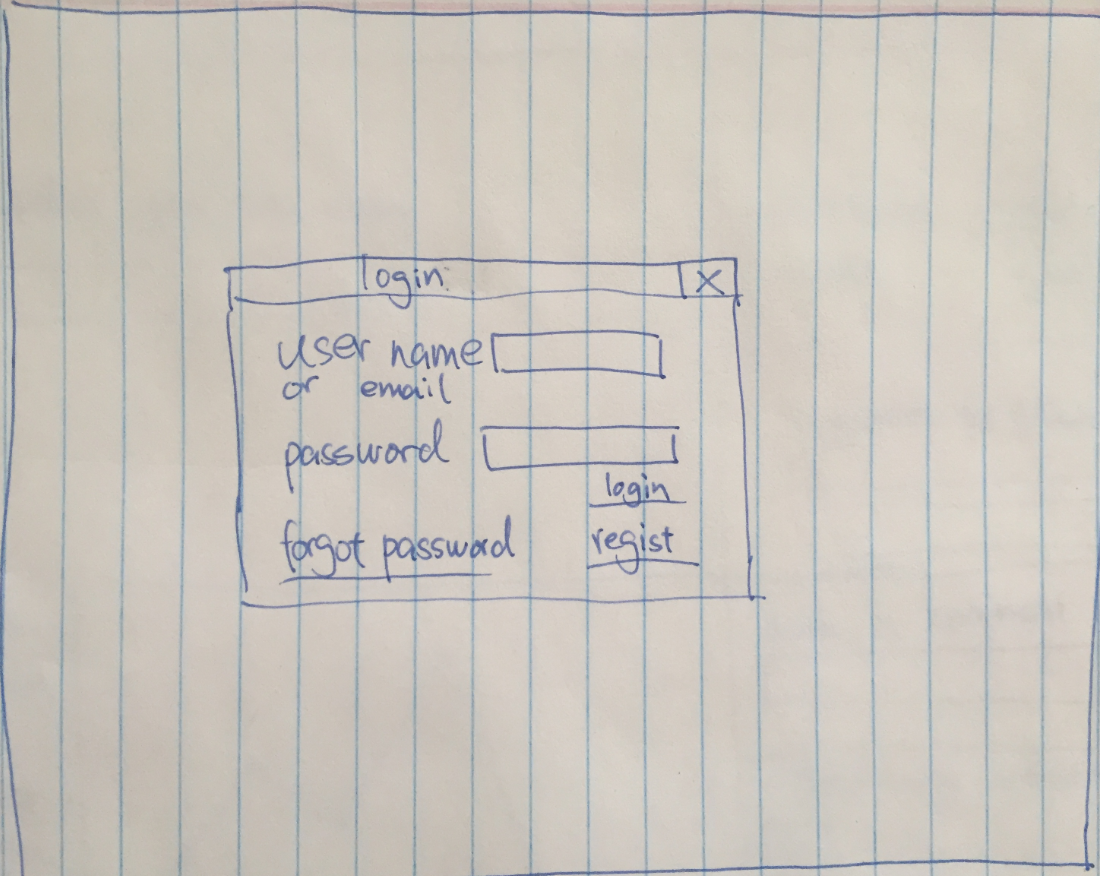 login
X
user name
or email
password
login
forgot password
regist